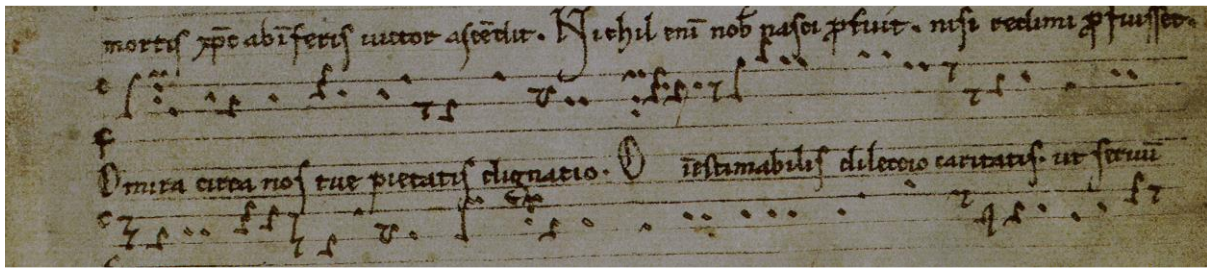 mortis xp̅c ab ĩferis uictor ascẽdit. Nichil eni̅ nob̅ nasci ꝓfuit. nisi redimi ꝓfuisset.
O mira circa nos tue pietatis dignatio. O ĩestimabilis dilectio caritatis. ut seruu̅